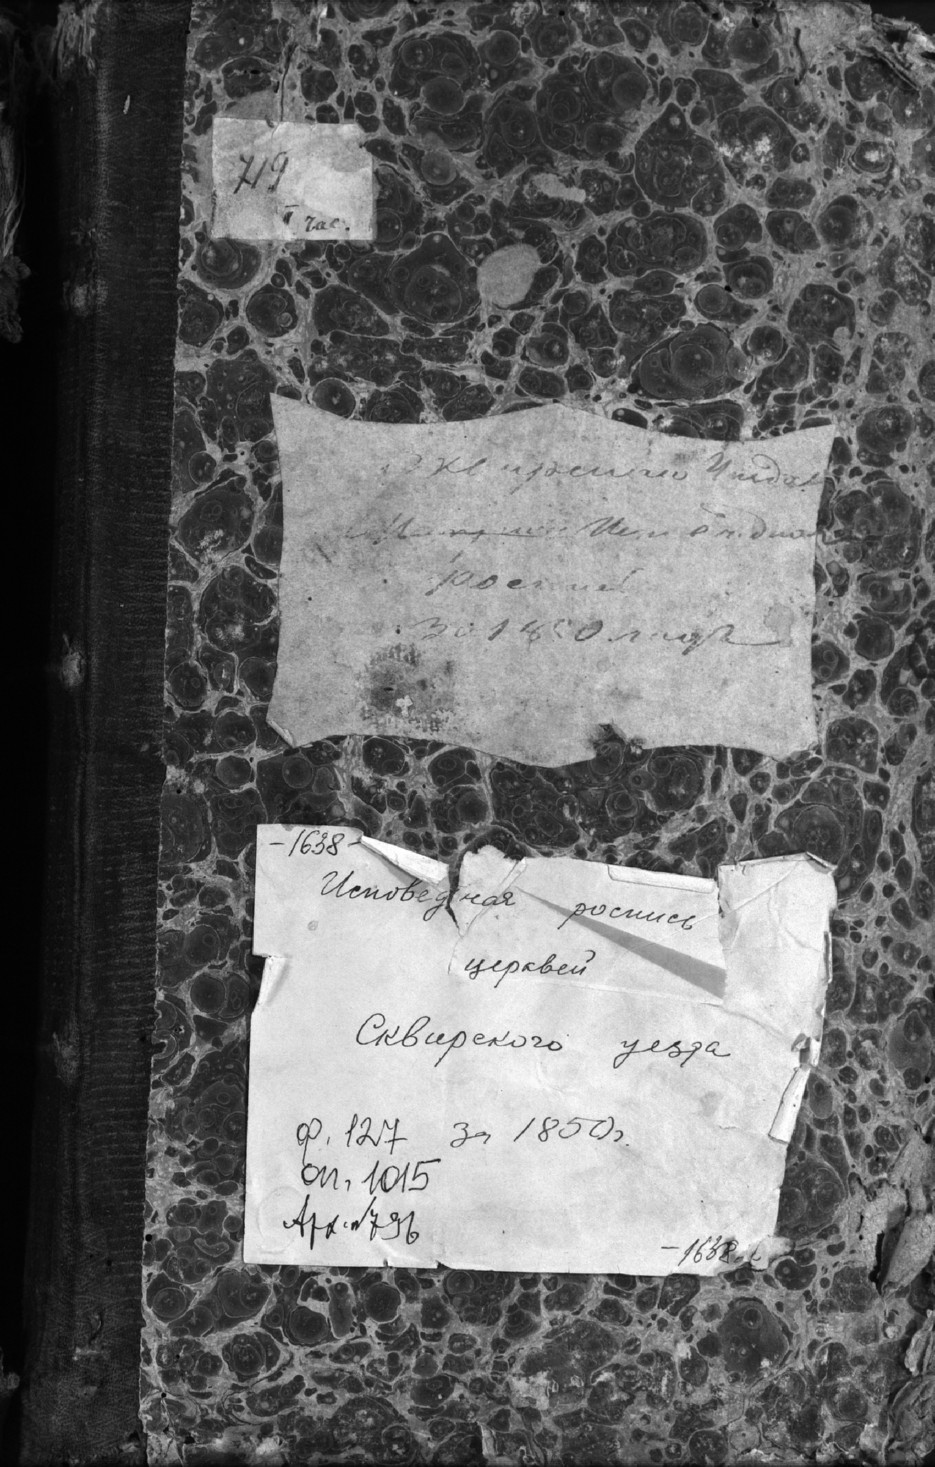 719
I час.
Сквирского Уезда
Исповедная
Роспись
За 1850 годъ
-1638-
Исповедная роспись
церквей
Сквирского уезда
ф. 127 за 1850г.
оп. 1015
Арх. № 796
-1638 л